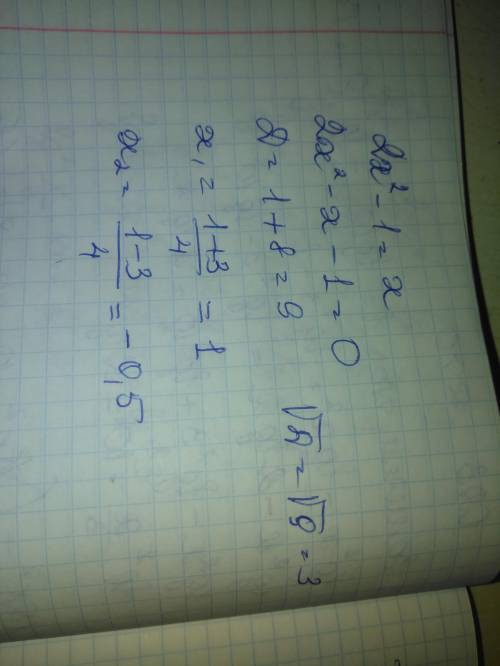 2x² - 1 = x
2x² - x - 1 = 0
D = 1 + 8 = 9 √D = √9 = 3
x₁ = (1+3)/4 = 1
x₂ = (1-3)/4 = -0,5